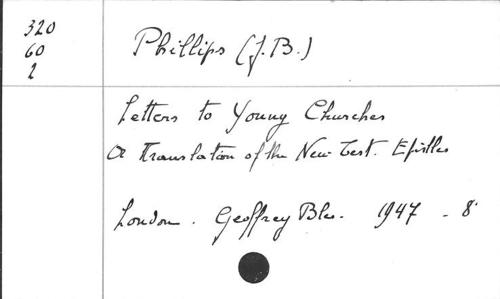 320
60
2
Phillips (J.B.)
Letters to Young Churches
A Translation of the New Test. Epistles
London. Geoffrey Bles. 1947 - 8°